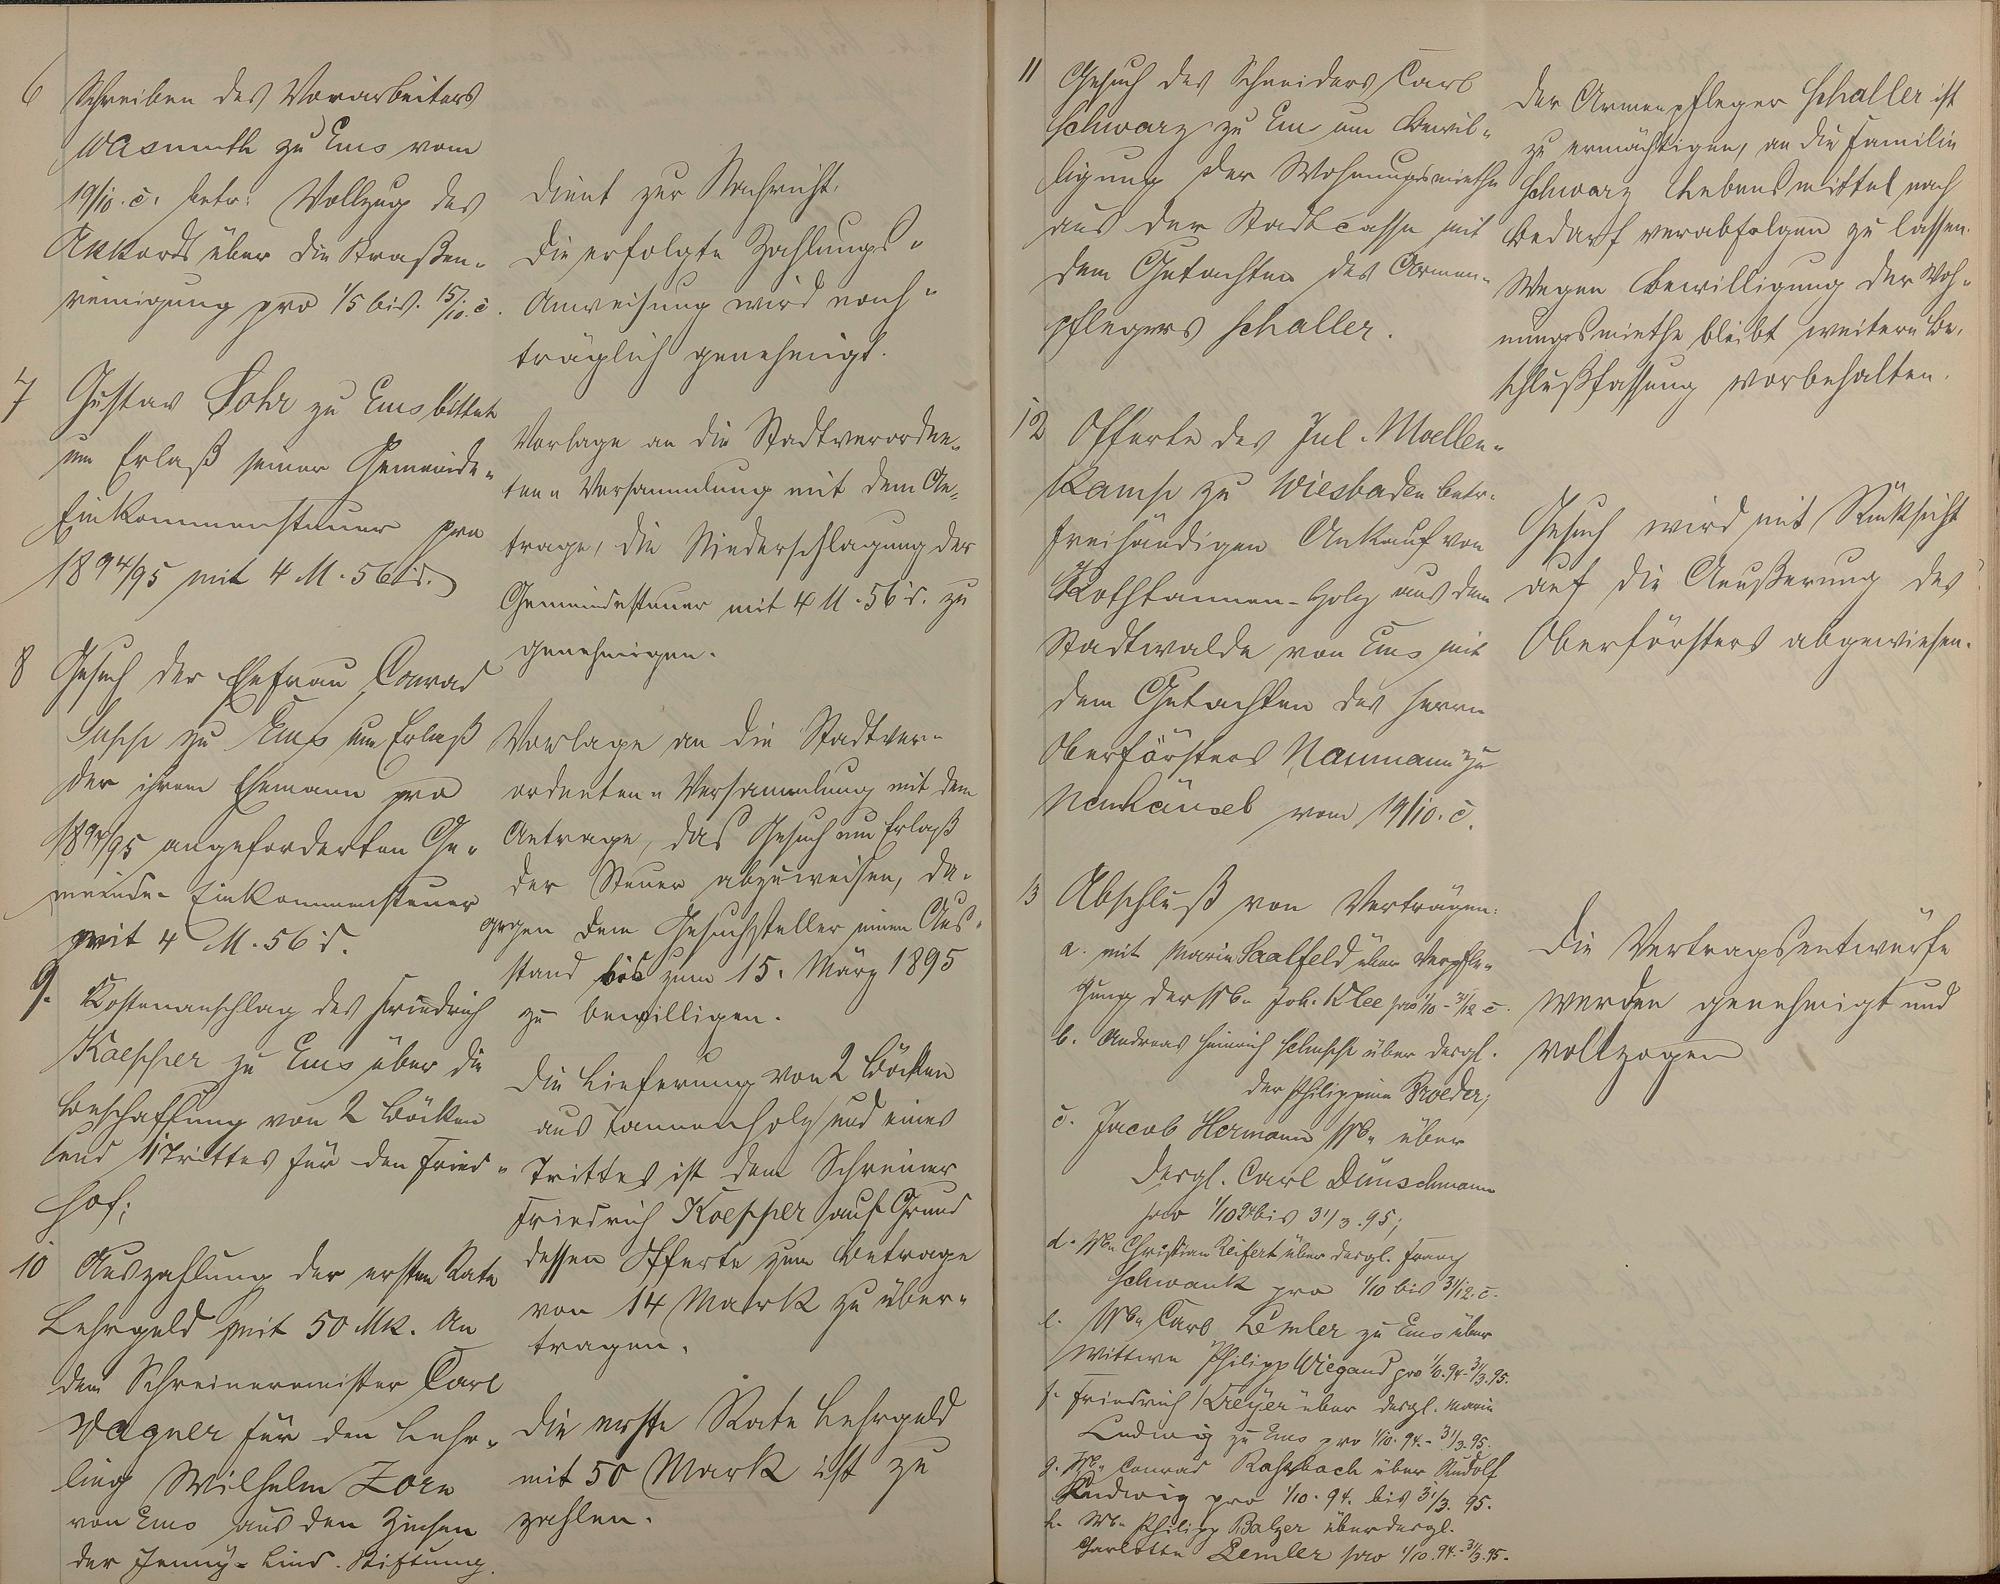 6 Schreiben des Vorarbeiters
Wasmuth zu Ems vom
19/10. c. betr: Vollzug des
Akkords über die Straßen-
reinigung pro 1/5 bis 15/10. c.
dient zur Nachricht.
Die erfolgte Zahlungs-
Anweisung wird nach-
träglich genehmigt.
7 Gustav Sohr zu Ems bittet
um Erlaß seiner Gemeinde-
Einkommensteuer pro
1894/95 mit 4 M. 56 d.
Vorlage an die Stadtverordne-
ten-Versammlung mit dem An-
trage, die Niederschlagung der
Gemeindesteuer mit 4 M. 56 d. zu
genehmigen.
8 Gesuch der Ehefrau Conrad
zu Ems um Erlaß
der ihrem Ehemann pro
1894/95 angeforderten Ge-
meinde-Einkommensteuer
mit 4 M. 56 d.
Vorlage an die Stadtver-
ordneten-Versammlung mit dem
Antrage, das Gesuch um Erlaß
der Steuer abzuweisen, da-
gegen dem Gesuchsteller einen Aus-
stand bis zum 15. März 1895
zu bewilligen.
9. Kostenanschlag des Friedrich
Koepper zu Ems über die
Beschaffung von 2 Böcken
und 1 Trittes für den Fried-
hof;
Die Lieferung von 2 Böcken
aus Tannenholz und eines
Trittes ist dem Schreiner
Friedrich Koepper auf Grund
dessen Offerte zum Betrage
von 14 Mark zu über-
tragen.
10 Auszahlung der ersten Rate
Lehrgeld mit 50 Mk. an
den Schreinermeister Carl
Wagner für den Lehr-
ling Wilhelm Zorn
von Ems aus den Zinsen
der Jenny-Lind-Stiftung.
Die erste Rate Lehrgeld
mit 50 Mark ist zu
zahlen.
11 Gesuch des Schneiders Carl
Schwarz zu Ems um Bewil-
ligung der Wohnungsmiethe
aus der Stadtcasse mit
dem Gutachten des Armen-
pflegers Schaller.
Der Armenpfleger Schaller ist
zu ermächtigen, an die Familie
Schwarz Lebensmittel nach
Bedarf verabfolgen zu lassen.
Wegen Bewilligung der Woh-
nungsmiethe bleibt weitere Be-
schlußfassung vorbehalten.
12 Offerte des Jul. Moellen-
kamp zu Wiesbaden betr.
freihändigen Ankauf von
Rothtannen-Holz aus dem
Stadtwalde von Ems mit
dem Gutachten des Herrn
Oberförsters Naumann zu
Neuhäusel vom 19/10. c.
Gesuch wird mit Rücksicht
auf die Aeußerung des
Oberförsters abgewiesen.
13 Abschluß von Verträgen:
a. mit Marie Saalfeld über Verpfle-
gung der Wb. Joh. Klee pro 1/10 - 31/12 c.
b. Andreas Heinrich über dergl.
der Philippine Roeder;
c. Jacob Hermann Wb. über
dergl. Carl Dünschmann
pro 1/10 94 bis 31/3. 95;
d. Wb. Christian Reifert über dergl. Franz
Schwank pro 1/10 bis 31/12. c.
e. Wb. Carl Lemler zu Ems über
Wittwe Philipp Wiegand pro 1/10. 94 - 31/3. 95.
f. Friedrich Kreyer über dergl. Marie
Ludwig zu Ems pro 1/10. 94. - 31/3. 95.
g. Wb. Conrad Rahsbach über Rudolf
Ludwig pro 1/10. 94. bis 31/3. 95.
h. Wb. Philipp Balzer über dergl.
Charlotte Lemler pro 1/10. 94. - 31/3. 95.
Die Vertragsentwürfe
werden genehmigt und
vollzogen